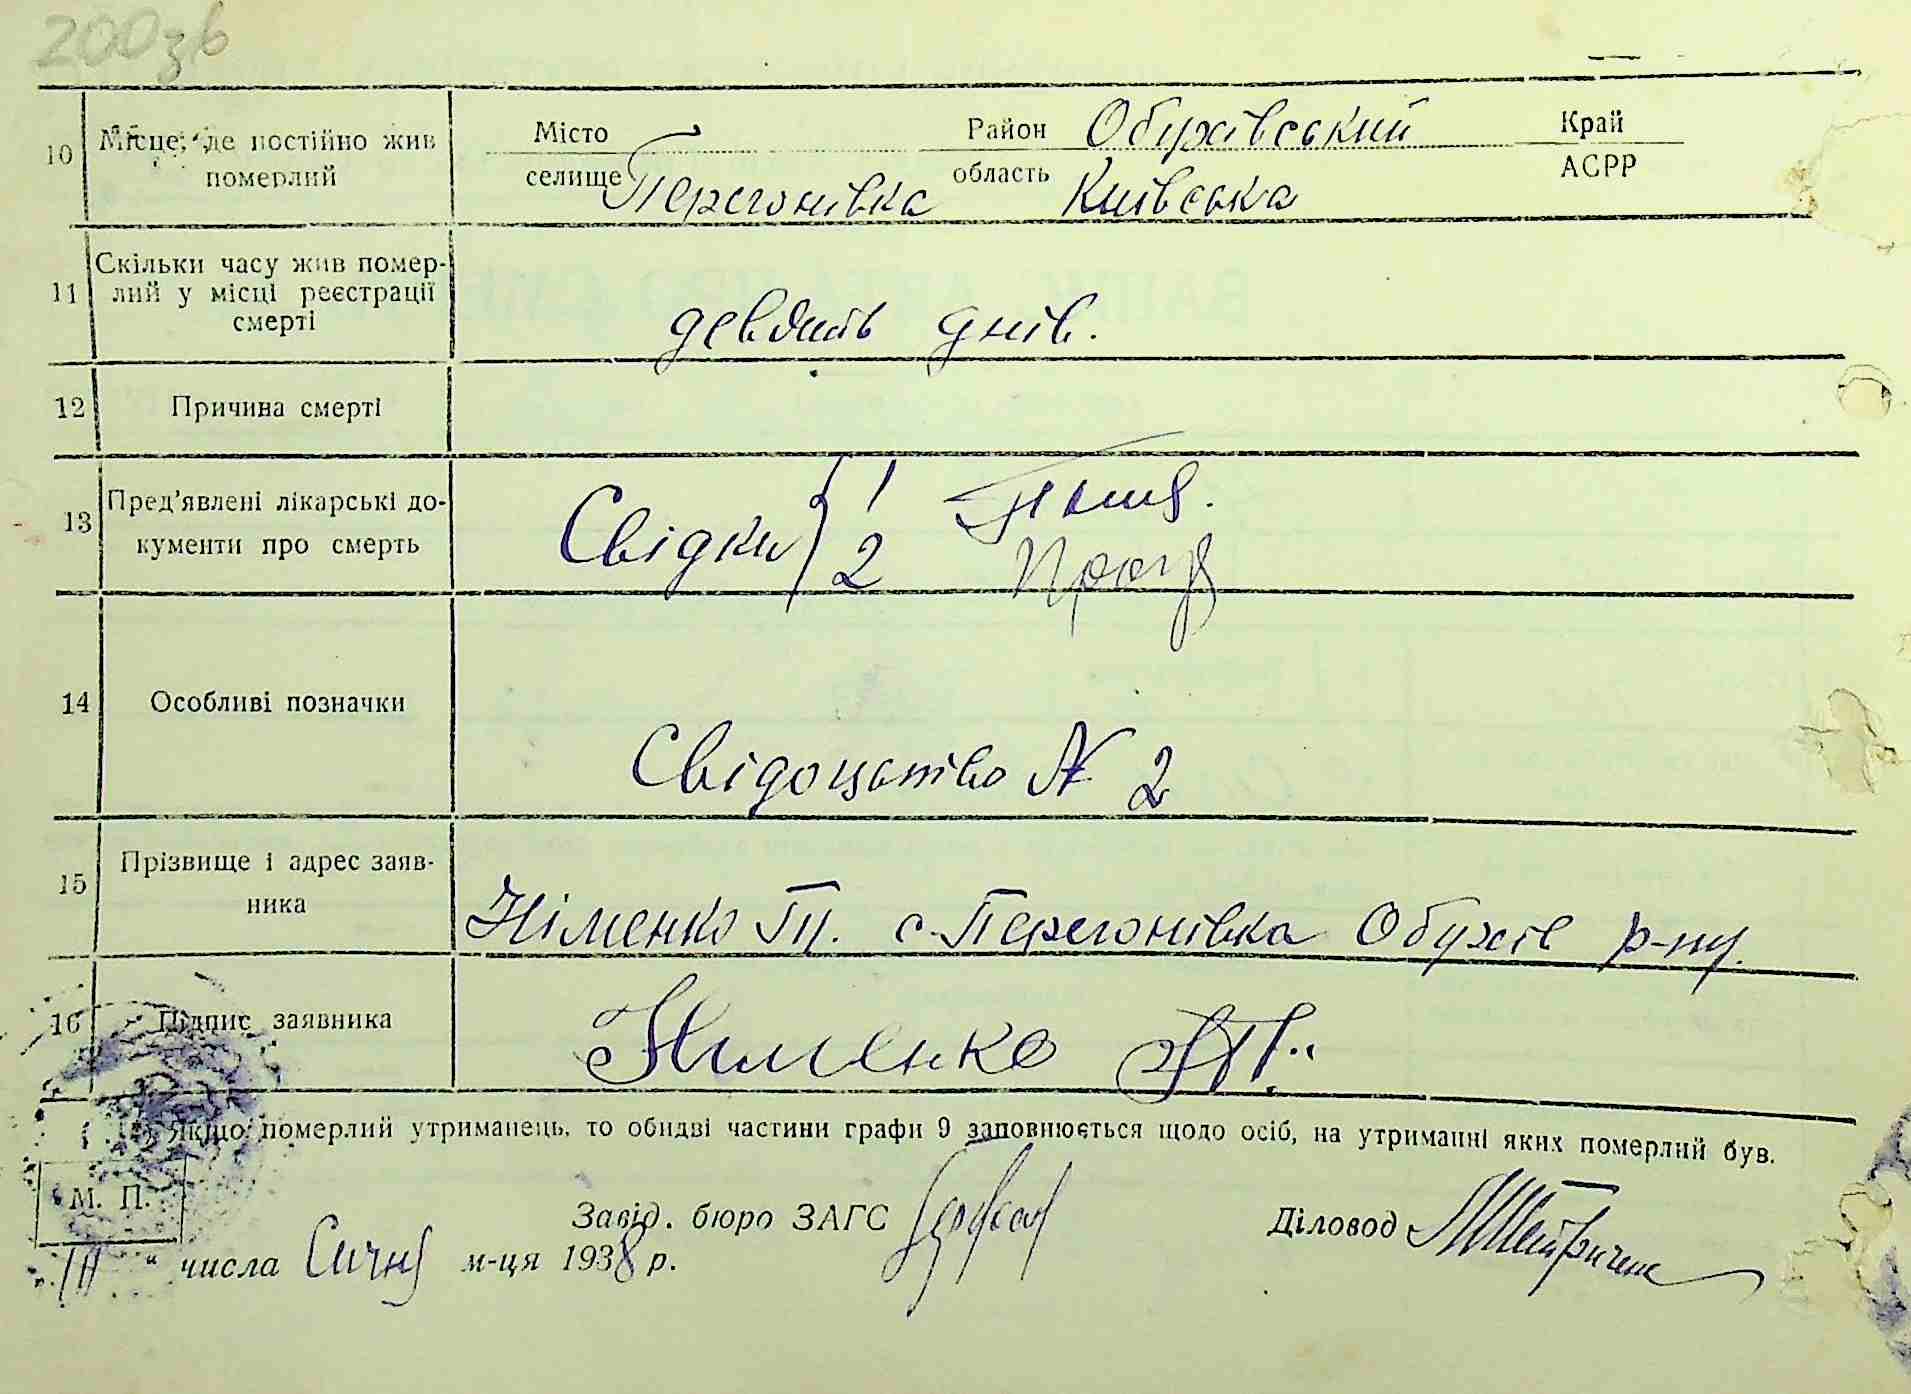 200зв
10 Місце, де постійно жив Місто Район Обухівський Край
померлий селище Перегонівка область Київська АСРР
11 Скільки часу жив помер-
лий у місці реєстрації
смерті
девять днів.
12 Причина смерті
13 Пред’явлені лікарські до-
кументи про смерть
Свідки 1
2
14 Особливі позначки
Свідоцьтво № 2
15 Прізвище і адрес заяв-
ника
Німенко Т. с. Перегонівка Обухів р-ну.
16 Підпис заявника Нименко
Якщо померлий утриманець, то обидві частини графи 9 заповнюється щодо осіб, на утриманні яких померлий був.
М. П.
Завід. бюро ЗАГС Діловод
“ числа Січня м-ця 1938 р.